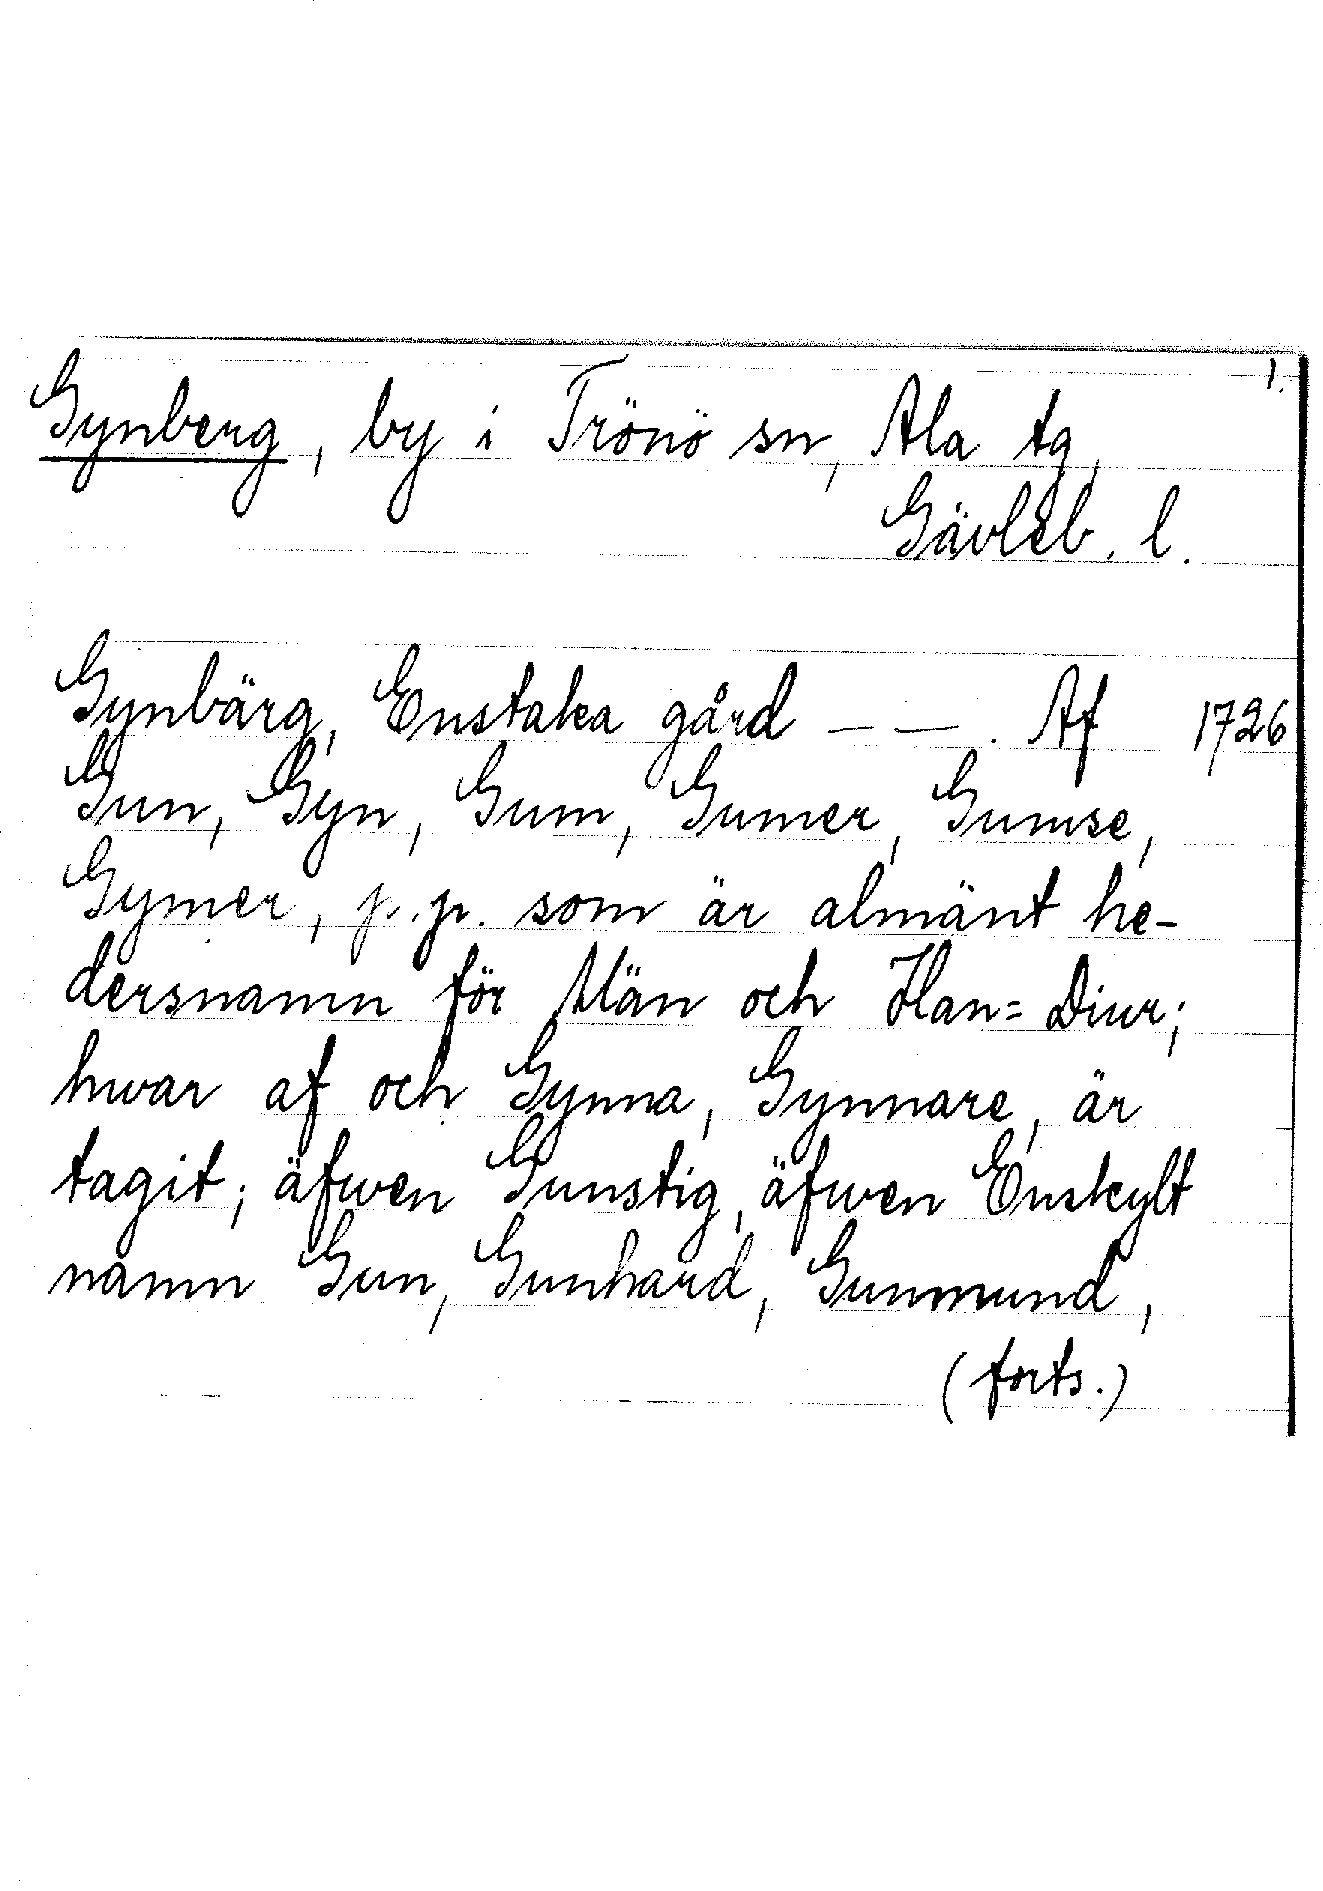 1.
Gynberg, by i Trönö sn, Ala tg,
Gävleb. l.
Gynbärg, Enstaka gård — — . Af 1726
Gun, Gyn, Gum, Gumer, Gumse,
Gymer, p.p. som är almänt he-
dersnamn för Män och Han= Diur;
hwar af och Gynna, Gynnare, är
tagit; äfwen Gunstig, äfwen Enskylt
namn Gun, Gunhard, Gunmund,
(forts.)